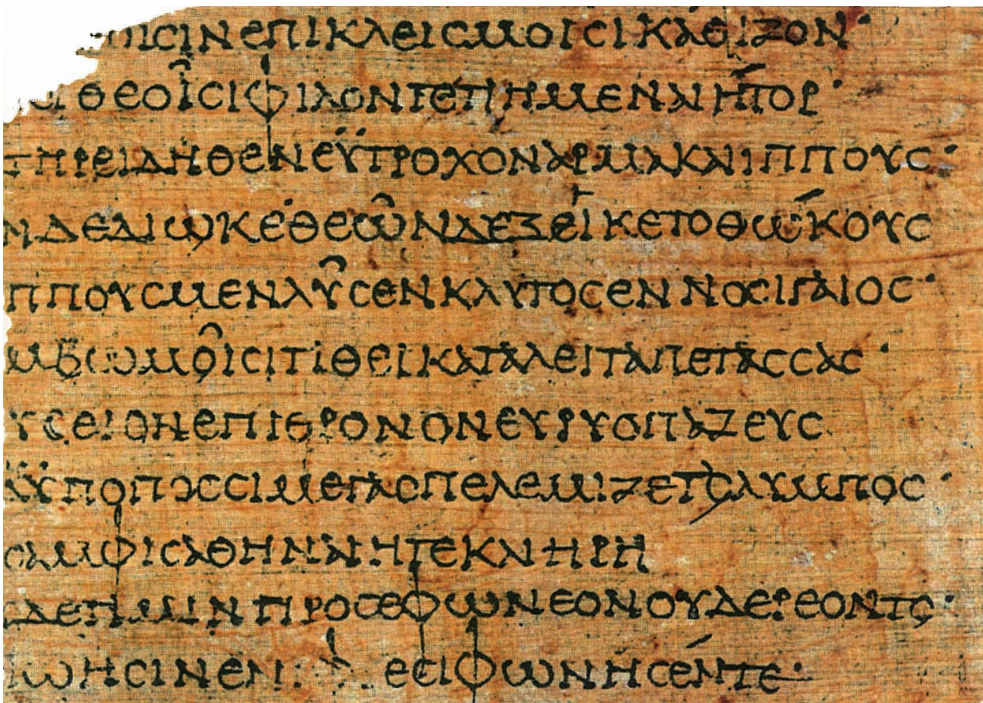 ΟΙϹΙΝΕΠΙΚΛΕΙϹΜΟΙϹΙΚΑΘΙΖΟΝ·
ΙΘΕΟΙ͂ϹΙΦΙΛΟΝΤΕΤΙΗΜΕΝΑΙΗ͂ΤΟΡ·
ΤΗΡΕΙΔΗΘΕΝΕΫΤΡΟΧΟΝΑΡΜΑΚΑΙΙΠΠΟΥϹ·
ΝΔΕΔΙΩΚΕ·ΘΕΩ͂ΝΔΕΞΕΙΚΕΤΟΘΏΚΟΥϹ
ΠΠΟΥϹΜΕΝΛΥ͂ϹΕΝΚΛΥΤΟϹΕΝΝΟϹΙΓΑΙΟϹ·
ΜΒΩΜΟΙ͂ϹΙΤΙΘΕΙΚΑΤΑΛΕΙΤΑΠΕΤΑϹϹΑϹ·
ΥϹΕΙΟΝΕΠΙΘΡΟΝΟΝΕΥΡΥΟΠΑΖΕΥϹ
ΔΫΠΟΠΟϹϹΙΜΕΓΑϹΠΕΛΕΜΙΖΕΤΟΛΥΜΠΟϹ·
ϹΑΜΦΙϹΑΘΗΝΑΙΗΤΕΚΑΙΗΡΗ
ΔΕΤΙΜΙΝΠΡΟϹΕΦΩΝΕΟΝΟΥΔΕΡΕΟΝΤΟ·
ΩΗϹΙΝΕΝΙ ΕϹΙΦΩΝΗϹΈΝΤΕ·